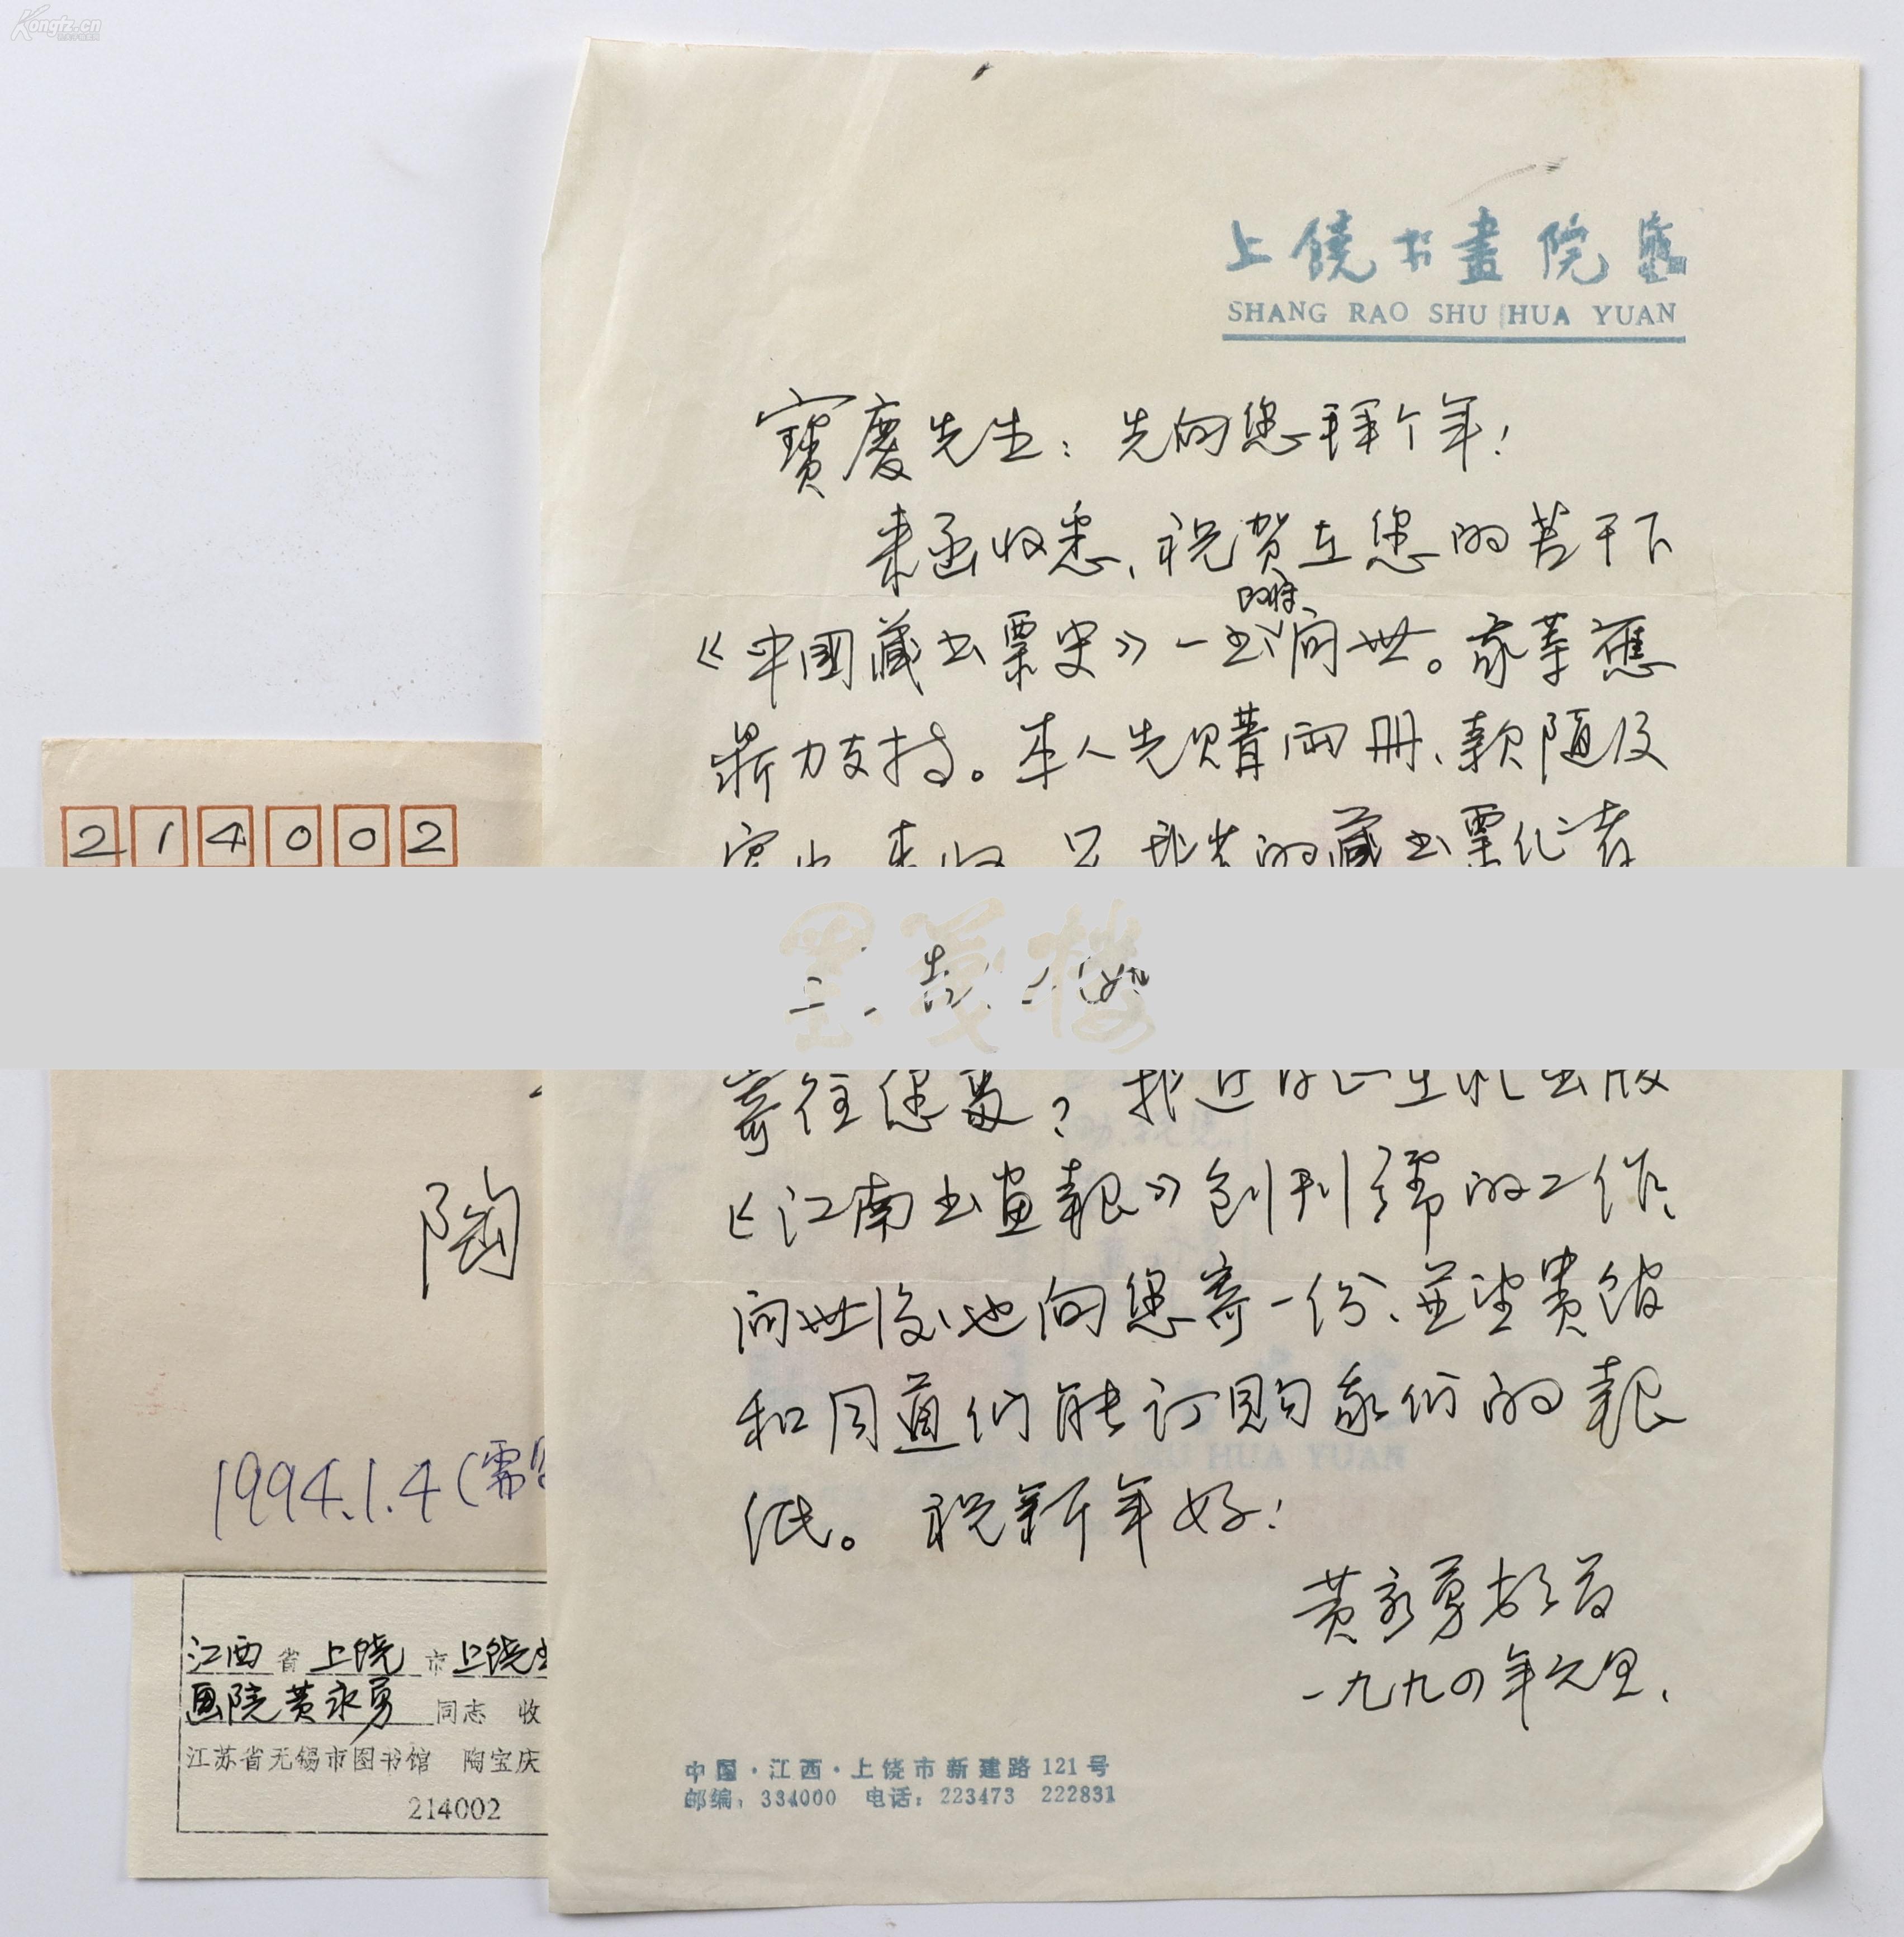 Kongfz.cn
上饶书畫院
SHANG RAO SHU HUA YUAN
寶慶先生：先向您拜个年！
来函收悉、祝贺在您的苦干下
《中國藏书票史》一书即将问世。我等應
鼎力支持。本人先购両册、款随后
的藏书票作者
墨箋楼
寄往您處？我近日正在忙出版
《江南书画報》创刊號的工作、
问世後也向您寄一份、並望贵馆
和同道们能订购我们的報
纸。祝新年好！
黄永勇拜首
一九九四年元旦、
中国·江西·上饶市新建路121号
邮编：334000 电话：223473 222831
214002
陶
1994.1.4（需
江西省上饶市上饶书
画院黄永勇同志 收
江苏省无锡市图书馆 陶宝庆
214002